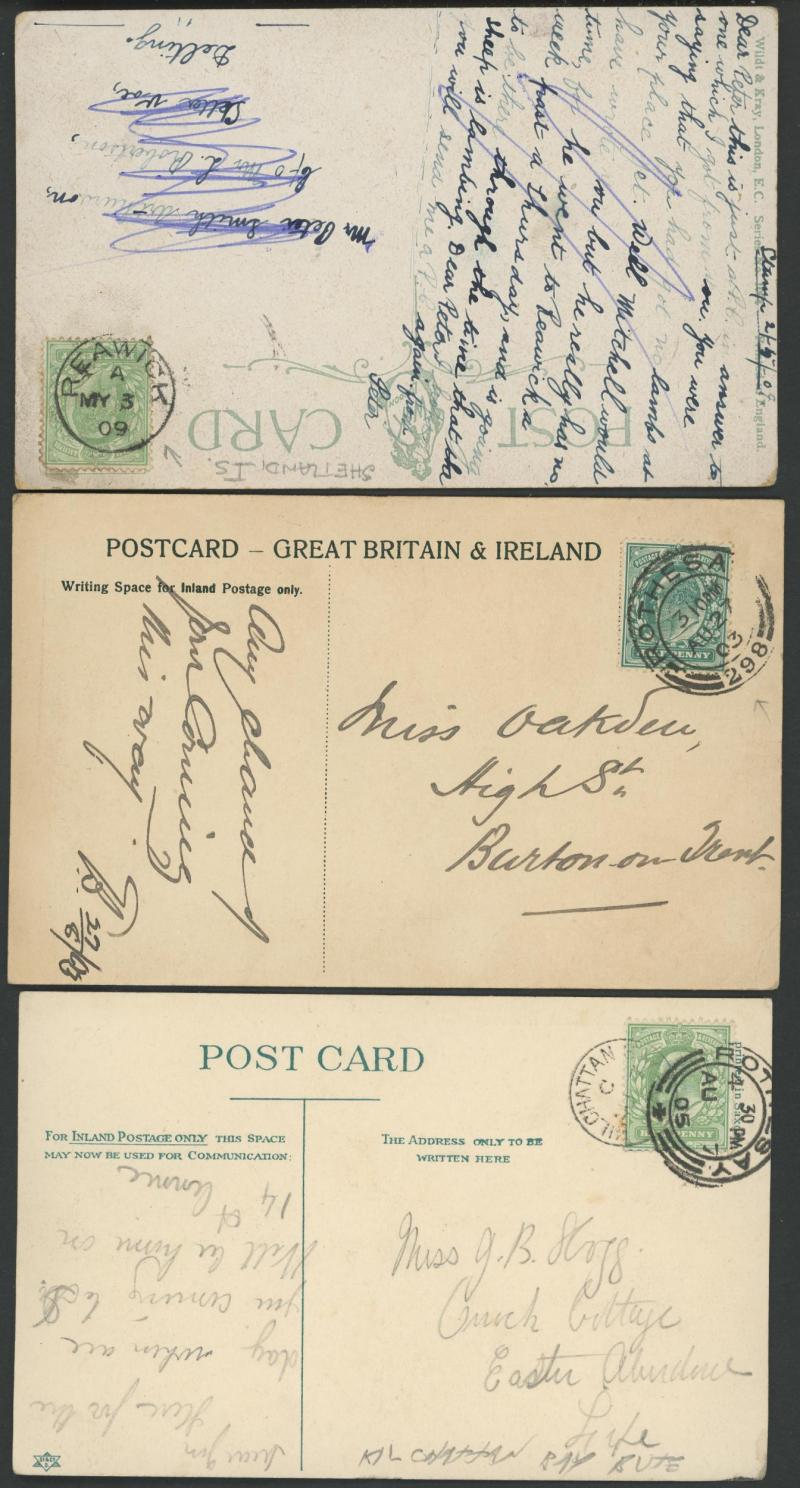 Wildt & Kray, London, E.C. Serie
England.
POST CARD
SHETLAND, IS.
REAWICK
A
MY 3
09
Dear Peter this is just a P.C. in answer to
one which I got from you. You were
saying that you had got no lambs at
your place yet. Well Mitchell would
have wrote you but he really has no
time, for he went to Reawick a
week past a Thursday, and is going
to be there through the time that the
sheep is lambing. Dear Peter
you will send me a P.C.
again from
Peter
Mr Peter Smith
c/o Mr L. Robertson,
Cella Voe,
Delting.
POSTCARD – GREAT BRITAIN & IRELAND
Writing Space for Inland Postage only.
ROTHESA
3 10 PM
AU 27
03
298
PENNY
Any chance of
your Coming
this way
27/8/03
Miss Oakden,
High St.
Burton-on-Trent.
POST CARD
FOR INLAND POSTAGE ONLY THIS SPACE
MAY NOW BE USED FOR COMMUNICATION:
THE ADDRESS ONLY TO BE
WRITTEN HERE
KILCHATTAN
C
OTHESAY
4 30 PM
AU 7
05
Here for the
day when are
you coming to
Will be home on
14 of
Miss J. B. Hogg.
Cottage
Easter Aberdour
Fife
KILCHATTAN BAY BUTE